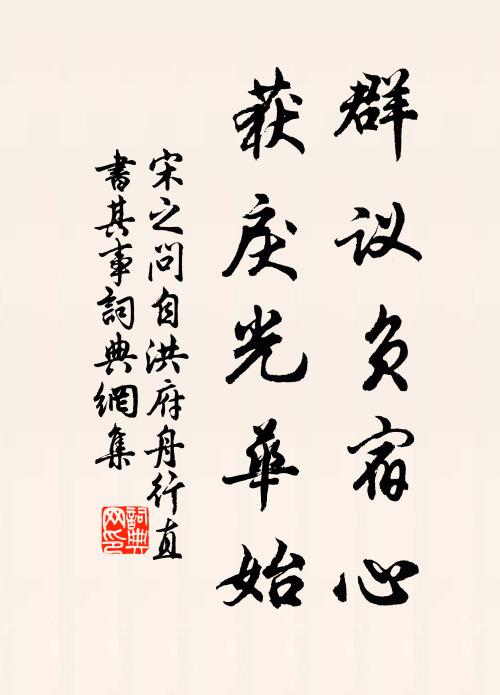 群议负宿心
获戾光华始
宋之问自洪府舟行直
書其事詞典網集
詞典
网印